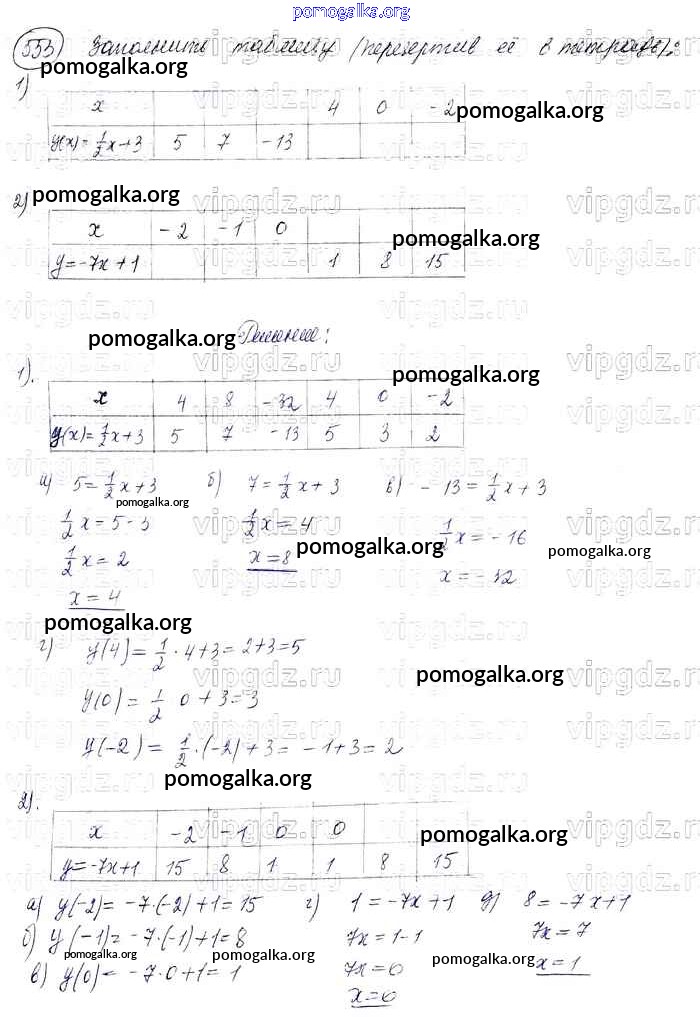 pomogalka.org
553) Заполнить таблицу (перечертив её в тетрадь):
pomogalka.org
1)
x 4 0 -2
pomogalka.org
y(x)=1/2x+3 5 7 -13
pomogalka.org
2)
x -2 -1 0
pomogalka.org
y=-7x+1 1 8 15
pomogalka.org Решение:
1).
pomogalka.org
x 4 8 -32 4 0 -2
y(x)=1/2x+3 5 7 -13 5 3 2
а) 5=1/2x+3 б) 7=1/2x+3 в) -13=1/2x+3
pomogalka.org
1/2x=5-3 1/2x=4 1/2x=-16
pomogalka.org pomogalka.org
1/2x=2 x=8 x=-32
x=4
pomogalka.org
г) y(4)=1/2·4+3=2+3=5
pomogalka.org
y(0)=1/2 0+3=3
y(-2)=1/2·(-2)+3=-1+3=2
pomogalka.org
2).
x -2 -1 0 0
pomogalka.org
y=-7x+1 15 8 1 1 8 15
а) y(-2)=-7·(-2)+1=15 г) 1=-7x+1 д) 8=-7x+1
б) y(-1)=-7·(-1)+1=8 7x=1-1 7x=7
pomogalka.org pomogalka.org
в) y(0)=-7·0+1=1 7x=0 x=1
x=0
vipgdz.ru